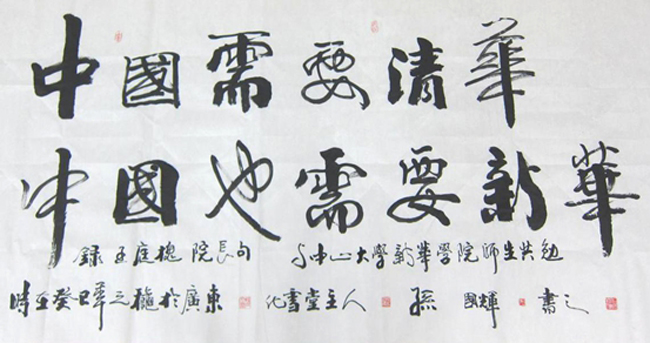 中國需要清華
中國也需要新華
錄王庭槐院長句 与中山大學新華學院師生共勉
時在癸巳年之龝於廣東 化雪堂主人 孫國輝 書之